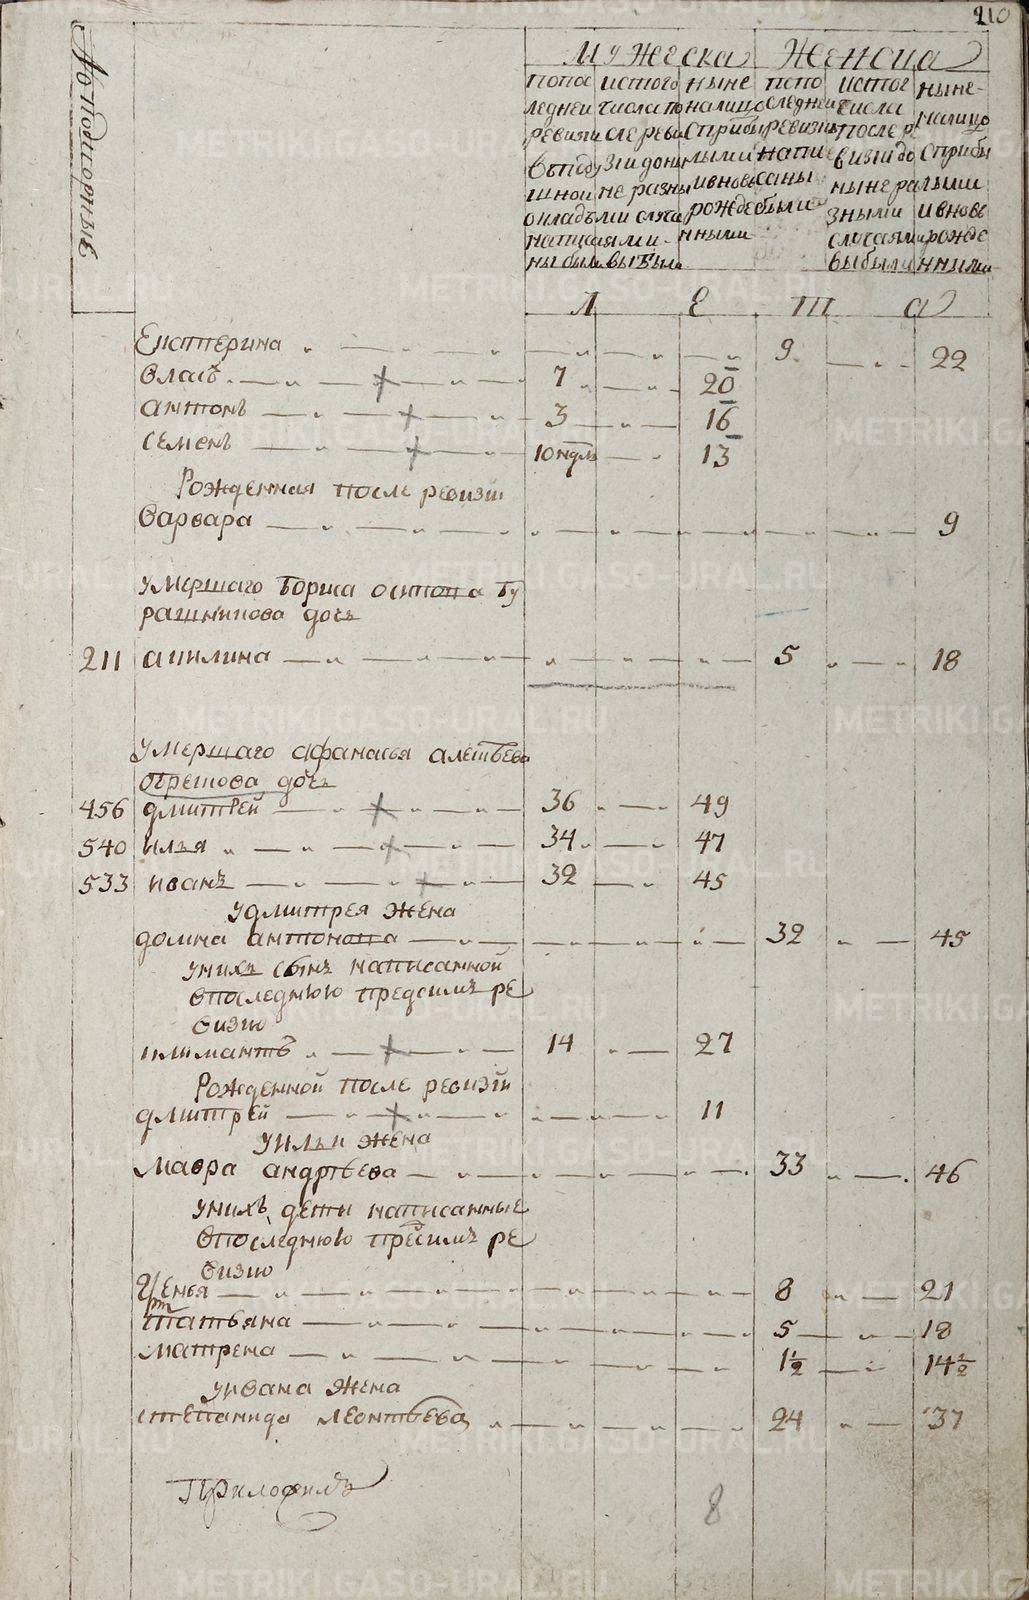 210
Мужеска Женска
попос ледней ревизии вподу шной окладъ написаны были
истого числа по сле реви зии доны не разны ми случа ями выбыли
ныне налицо сприбы лыми ивновь рожде нными
попо следней ревизии напи саны были
истог числа после ре визии до ныне ра зными случаями выбыли
ныне налицо сприбы лыми ивновь рожде нными
Л Е Т А
Екатерина 9 22
власъ 7 20
антонъ 3 16
семенъ 10 ндль 13
Рожденная после ревизiи
варвара 9
умершаго осипа Бу
рашникова дочь
211 акилина 5 18
умершаго афанасья
дети
456 дмитрей 36 49
540 илья 34 47
533 иванъ 32 45
удмитрея жена
антонова 32 45
унихъ сынъ написанной
впоследнюю предсимъ ре
визию
климантъ 14 27
Рожденной после ревизiи
дмитрей 11
уильи жена
мавра андреева 33 46
унихъ дети написанные
впоследнюю пресимъ ре
визию
8 21
татьяна 5 18
матрена 1½ 14½
уивана жена
степанида леонтьева 24 37
8
METRIKI.GASO-URAL.RU